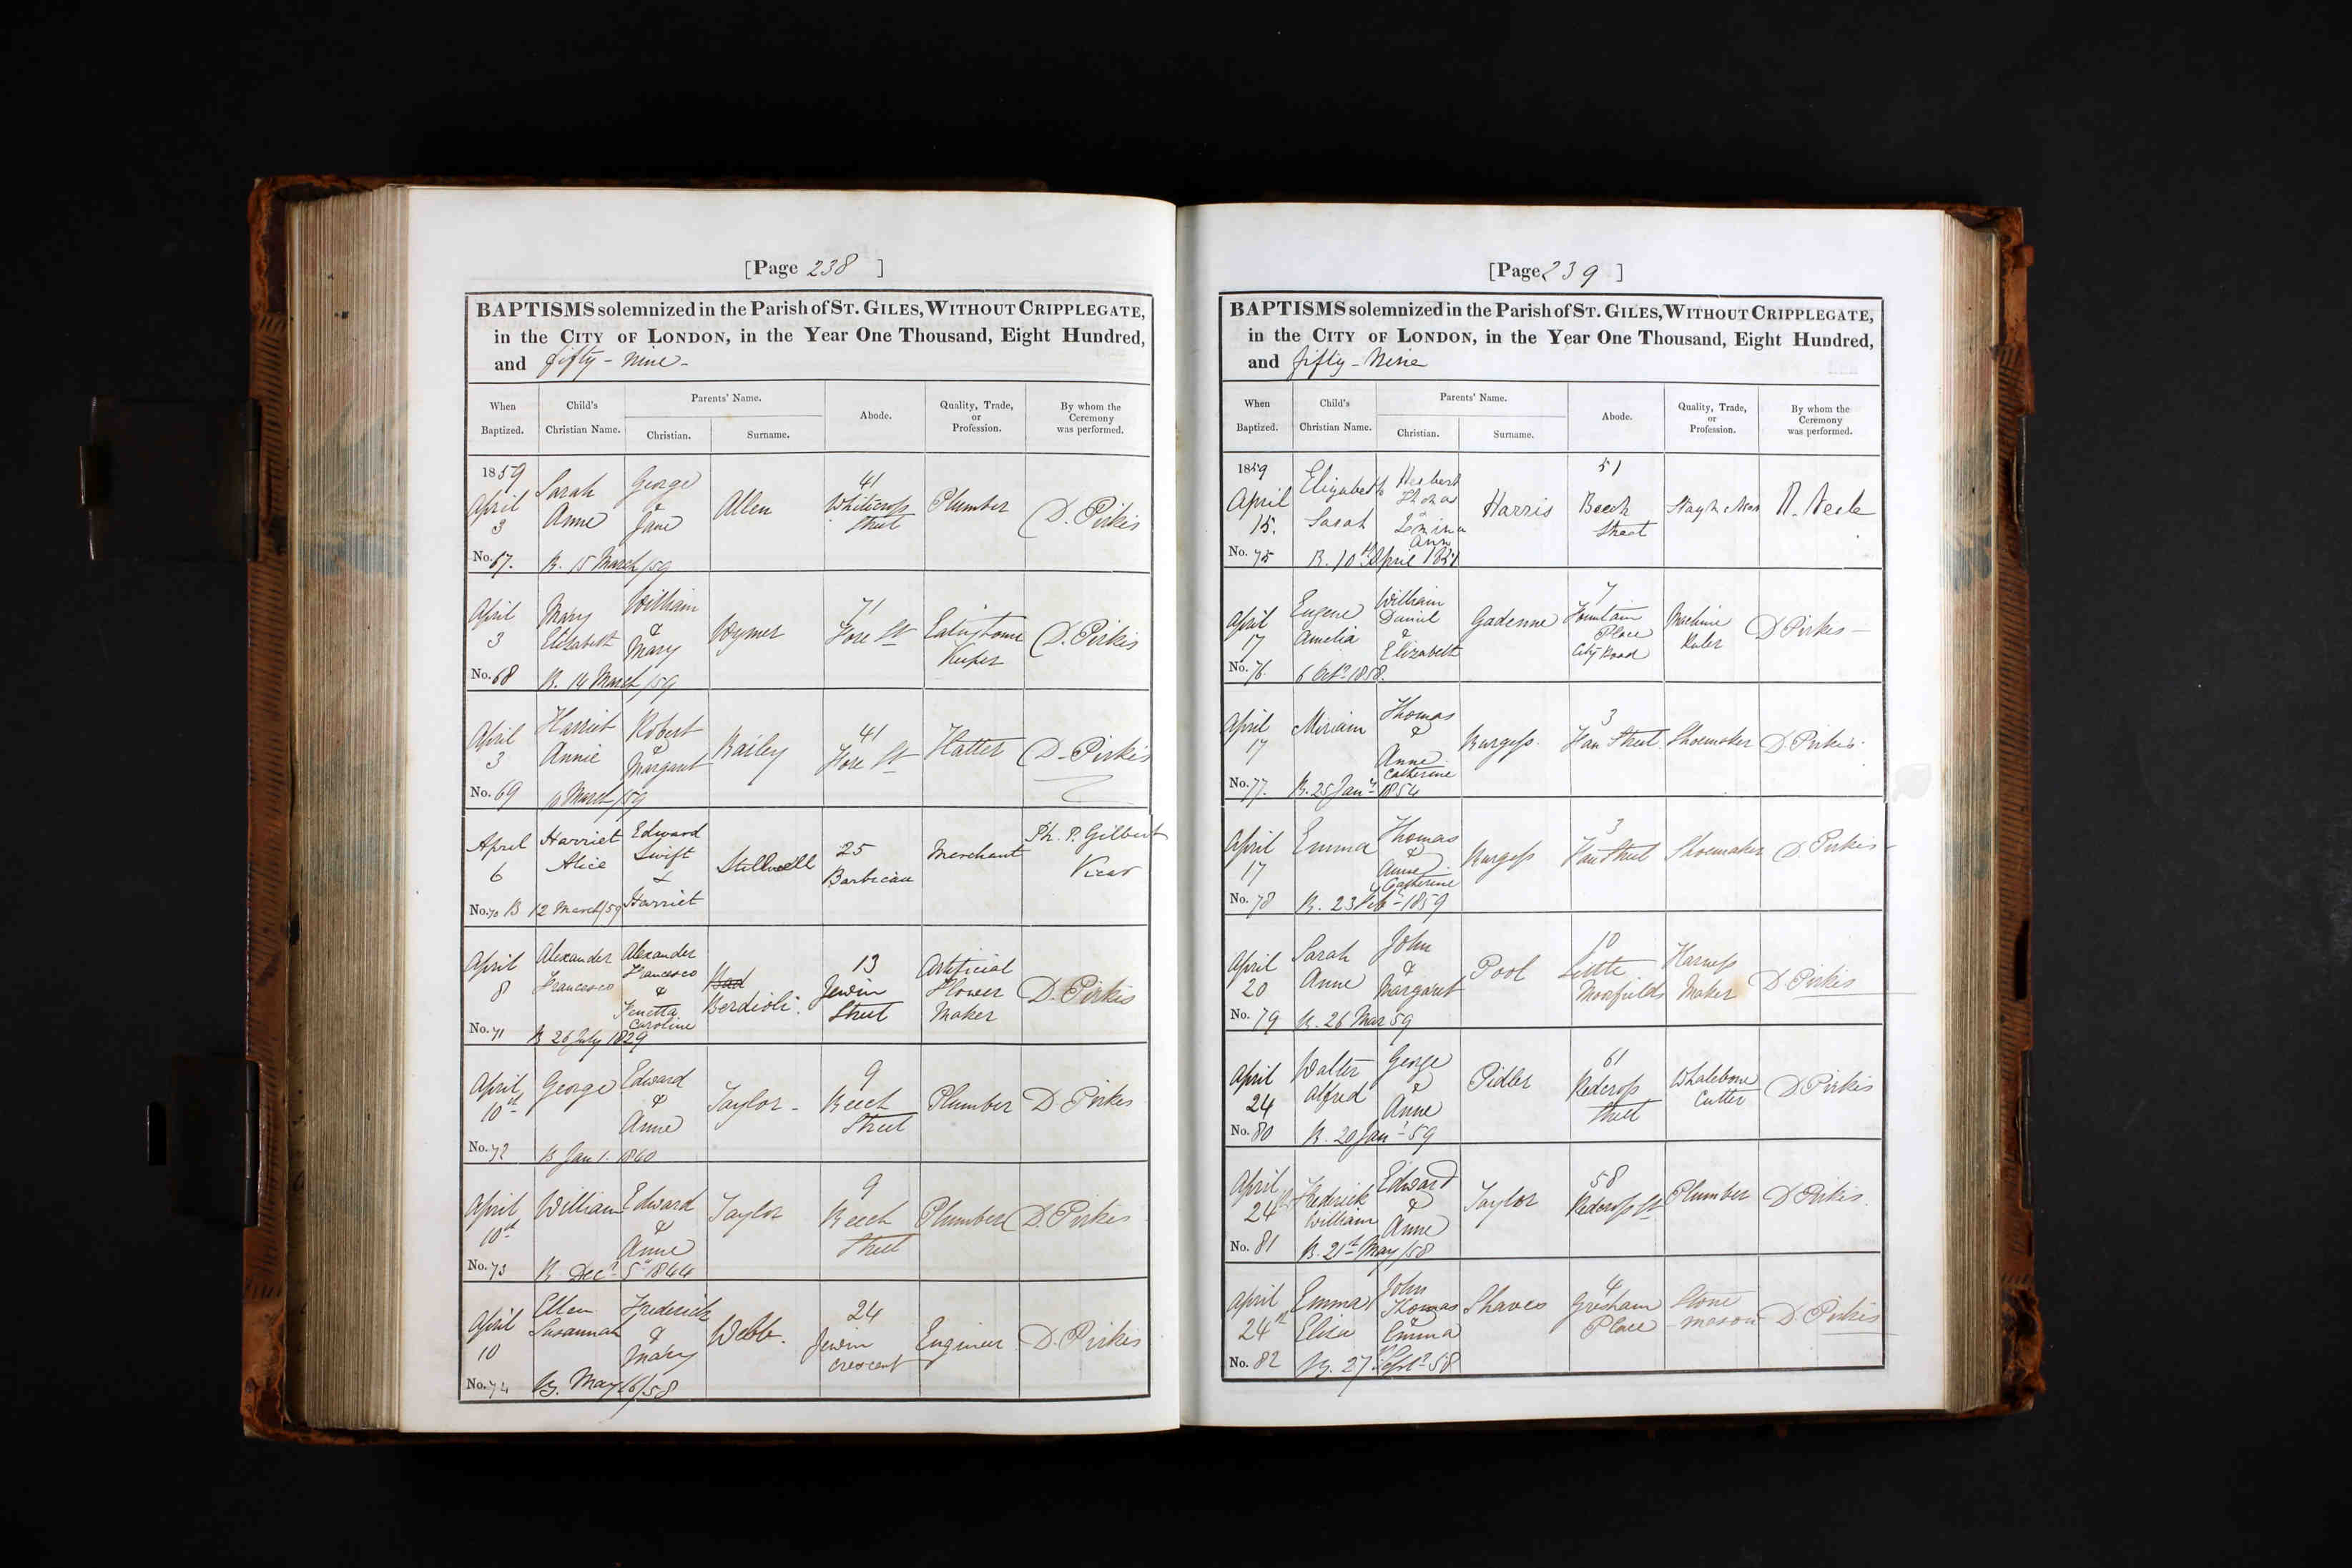 [Page 238 ]
BAPTISMS solemnized in the Parish of ST. GILES, WITHOUT CRIPPLEGATE,
in the CITY OF LONDON, in the Year One Thousand, Eight Hundred,
and fifty-nine-
When Baptized. Child's Christian Name. Parents' Name. Christian. Surname. Abode. Quality, Trade, or Profession. By whom the Ceremony was performed.
1859 April 3 Sarah Anne George & Jane Allen 41 Whitecross Street Plumber D. Pirkis
No. 67. B. 15 March/59
April 3 Mary Elizabeth William & Mary Wymer 71 Fore St Eatinghouse Keeper D. Pirkis
No. 68 B. 14 March/59
April 3 Harriet Annie Robert & Margaret Bailey 41 Fore St Hatter D. Pirkis
No. 69 March/59
April 6 Harriet Alice Edward Swift & Harriet Stillwell 25 Barbican Merchant Ph. P. Gilbert Vicar
No. 70 B 12 March/59
April 8 Alexander Francesco Alexander Francesco & Caroline Berdioli 13 Jewin Street Artificial Flower Maker D. Pirkis
No. 71 B 26 July 1829
April 10th George Edward & Anne Taylor - 9 Beech Street Plumber D. Pirkis
No. 72 B Jan 1. 1840
April 10th William Edward & Anne Taylor 9 Beech Street Plumber D. Pirkis
No. 73 B. Decr 5th 1844
April 10 Ellen Susannah Frederick & Mary Webb. 24 Jewin Crescent Engineer D. Pirkis
No. 74 B. May /58
[Page 239 ]
BAPTISMS solemnized in the Parish of ST. GILES, WITHOUT CRIPPLEGATE,
in the CITY OF LONDON, in the Year One Thousand, Eight Hundred,
and fifty-Nine
When Baptized. Child's Christian Name. Parents' Name. Christian. Surname. Abode. Quality, Trade, or Profession. By whom the Ceremony was performed.
1859 April 15. Elizabeth Sarah Herbert Thomas & Ann Harris 51 Beech Street
No. 75 B. 10th April
April 17 Eugene Amelia William Daniel & Elizabeth Gadenne 7 Fountain Place City Road Machine Ruler D Pirkis -
No. 76. 6 Octr 1858.
April 17 Miriam Thomas & Anne Catherine Burgess. 3 Street Shoemaker D. Pirkis.
No. 77. B. 25 Jany 1854
April 17 Emma Thomas & Anne Catherine Burgess 3 Street Shoemaker D. Pirkis -
No. 78 B. 23 Feb 1859
April 20 Sarah Anne John & Margaret Pool 10 Little Moorfields Harness Maker D. Pirkis
No. 79 B. 26 Mar 59
April 24 Walter Alfred George & Anne Pidler 61 Redcross Street Whalebone Cutter D. Pirkis
No. 80 B. 20 Jany 59
April 24th Fredrick William Edward & Anne Taylor 58 Redcross St Plumber D Pirkis.
No. 81 B. 21st May/58
April 24th Emma Eliza John Thomas & Emma Shaves 4 Gresham Place Stone mason D. Pirkis
No. 82 B. 27th Septr 58